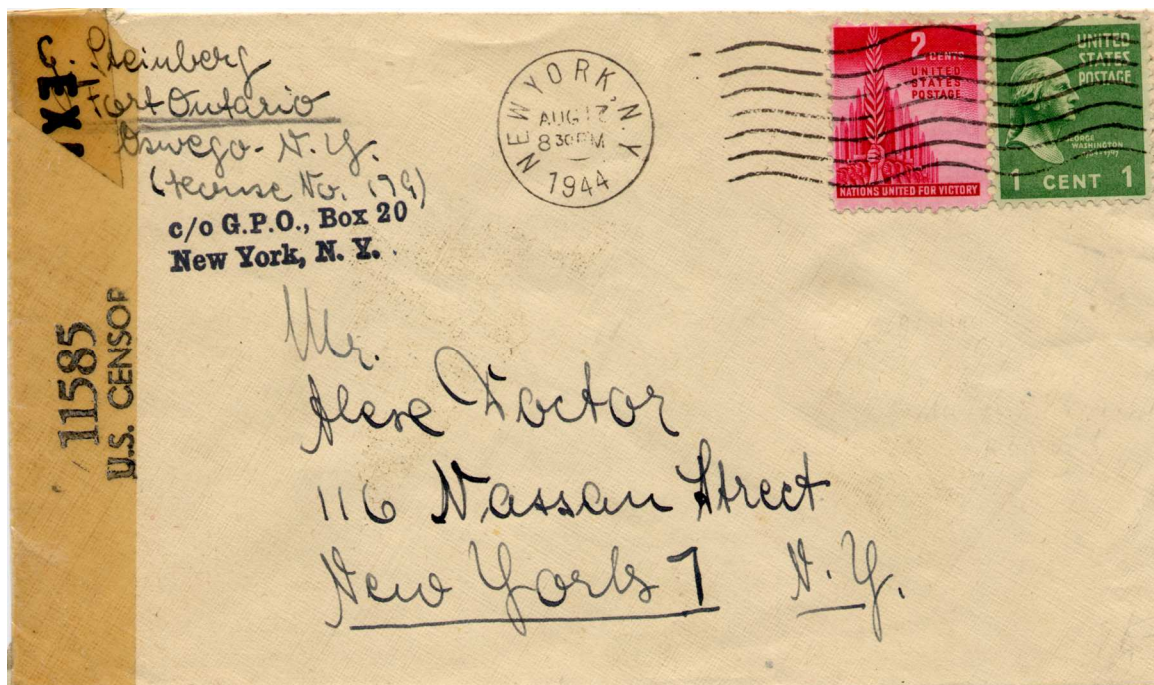 G. Steinberg
Fort Ontario
Oswego - N. Y.
(House No. 179)
c/o G.P.O., Box 20
New York, N. Y.
NEW YORK, N.Y.
AUG 17
8 30 PM
1944
2 CENTS
UNITED
STATES
POSTAGE
NATIONS UNITED FOR VICTORY
UNITED
STATES
POSTAGE
GEORGE
WASHINGTON
1 CENT 1
EX
11585
U.S. CENSOR
Mr.
Alexe Doctor
116 Nassau Street
New York 7 N.Y.